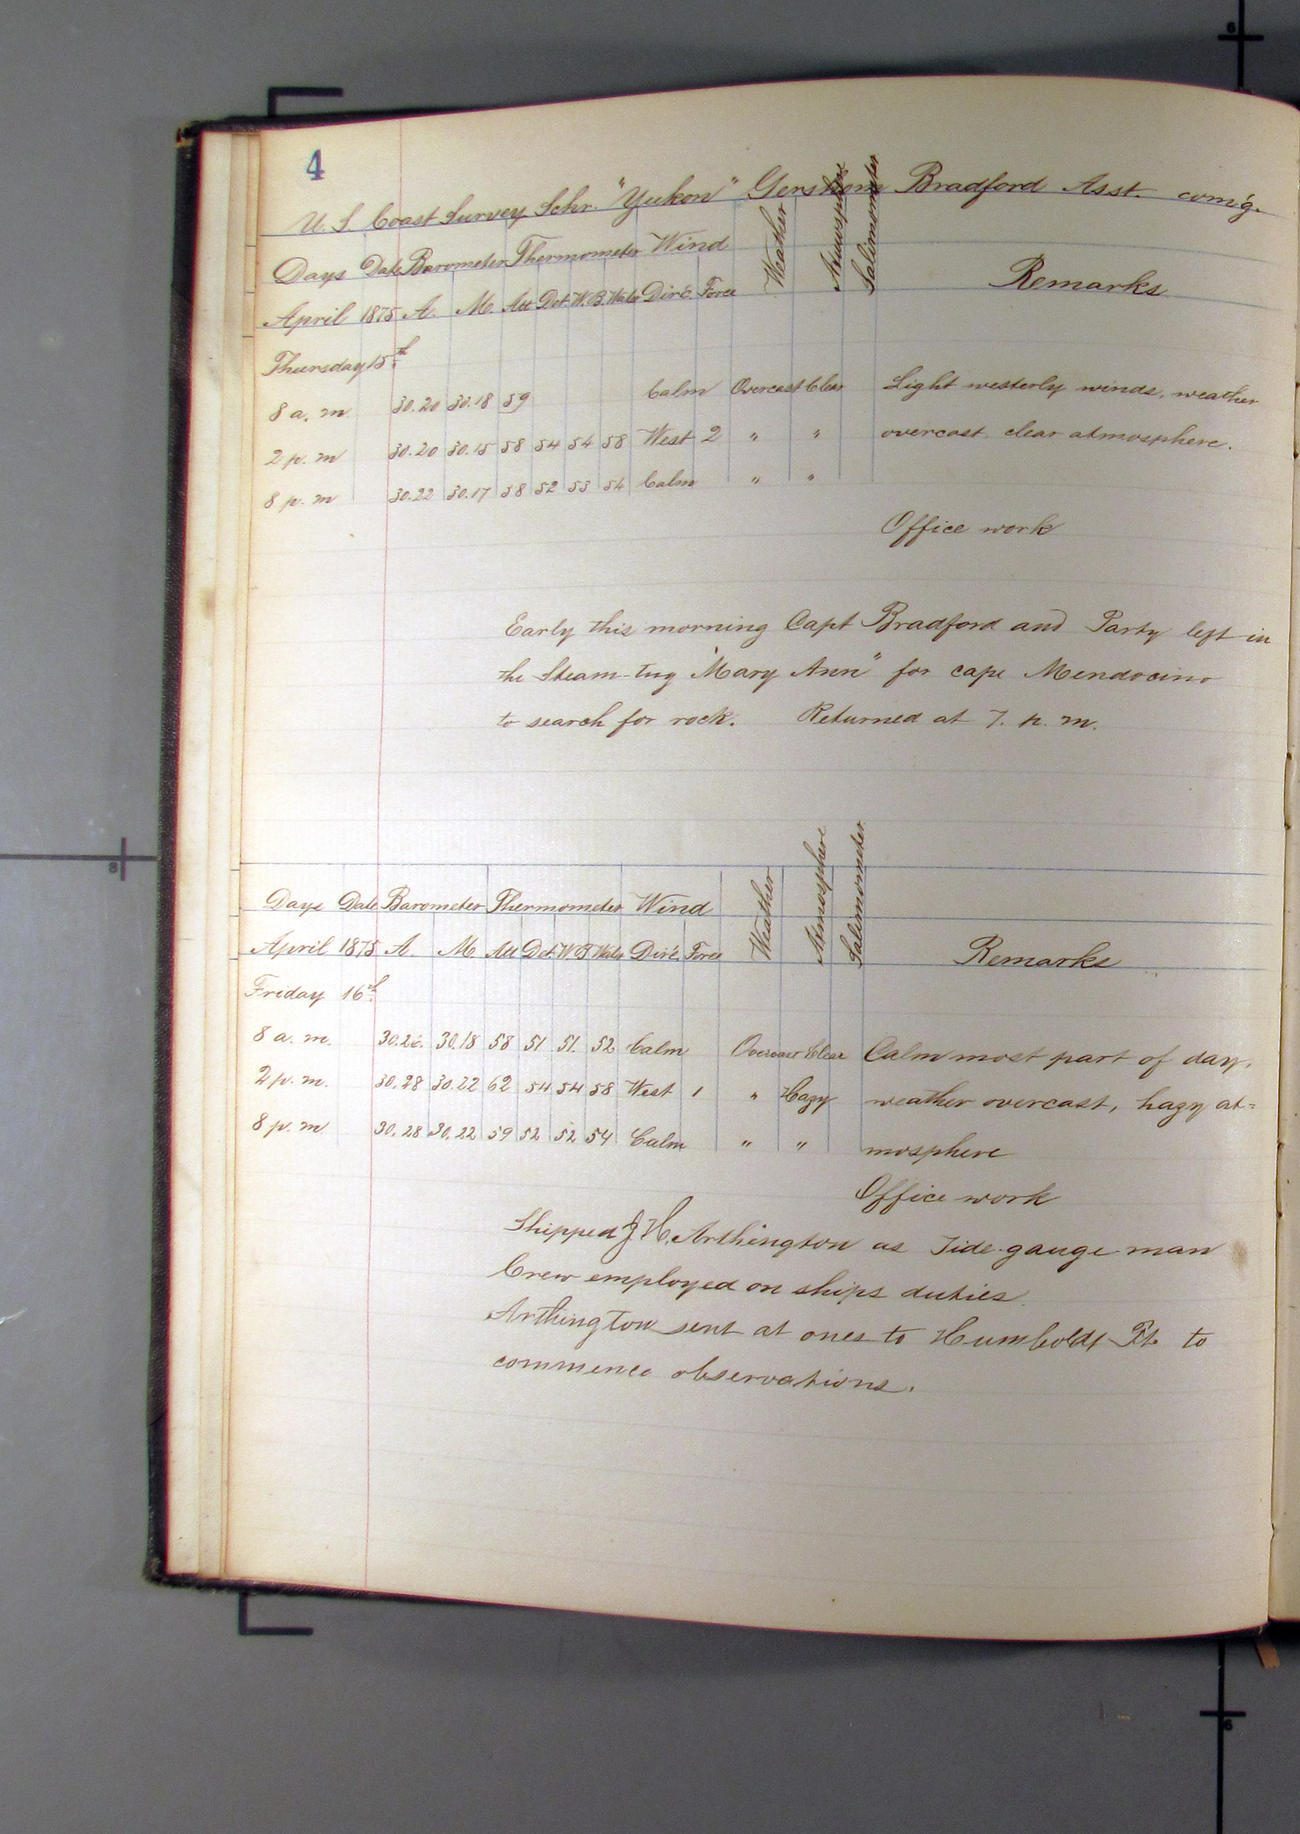 4
U. S. Coast Survey Schr. "Yukon" Gershom Bradford Asst. com'g.
Days Date Barometer Thermometer Wind Weather Atmosphere Salimometer Remarks
April 1875 A. M. Att Det W.B. Water Dir'c. Force
Thursday 15th
8 a. m 30.20 30.18 59 Calm Overcast Clear Light westerly winds, weather
2 p. m 30.20 30.15 58 54 54 58 West 2 " " overcast clear atmosphere.
8 p. m 30.22 30.17 58 52 53 54 Calm " "
Office work
Early this morning Capt Bradford and Party left in
the Steam-tug "Mary Ann" for cape Mendocino
to search for rock. Returned at 7. p. m.
Days Date Barometer Thermometer Wind Weather Atmosphere Salimometer Remarks
April 1875 A. M. Att Det W.B. Water Dir'c. Force
Friday 16th
8 a. m. 30.26. 30.18 58 51 51. 52 Calm Overcast Clear Calm most part of day,
2 p. m. 30.28 30.22 62 54 54 58 West 1 " Hazy weather overcast, hazy at=
8 p. m 30.28 30.22 59 52 52 54 Calm " " mosphere
Office work
Shipped J. H. Arthington as Tide-gauge man
Crew employed on ships duties.
Arthington sent at once to Humboldt Pt. to
commence observations.
8
6
6